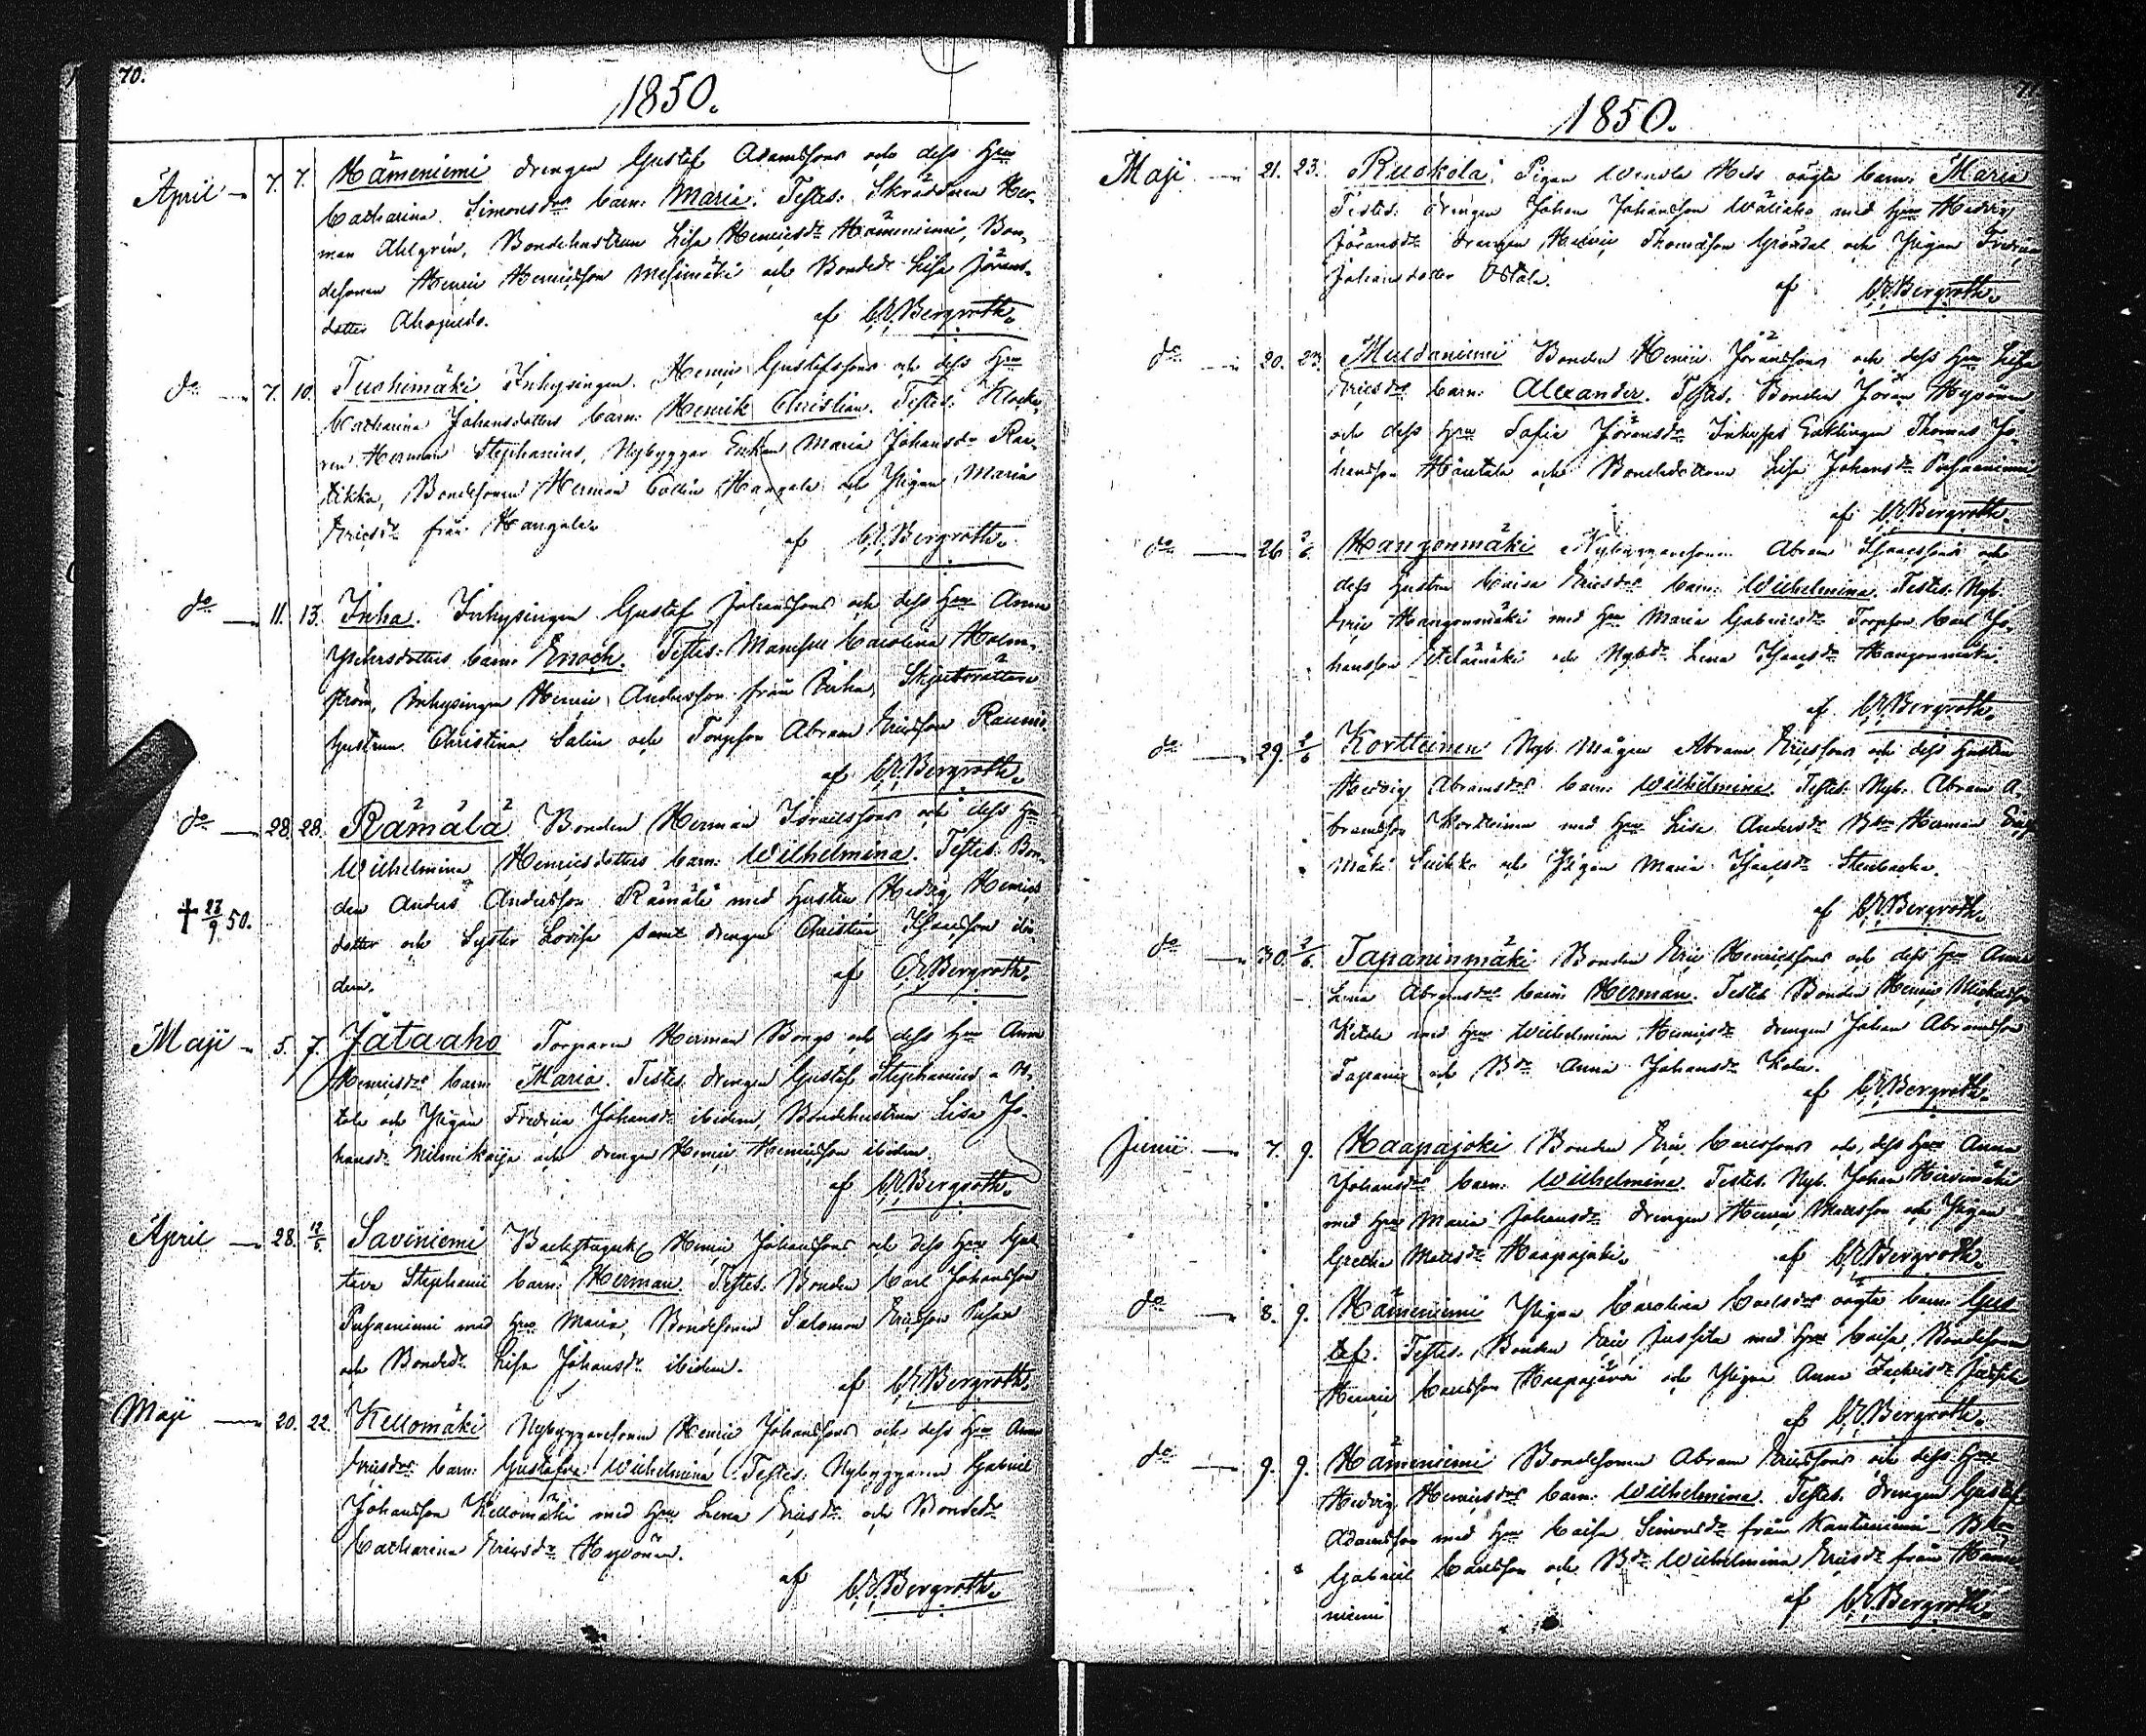 70.
1850.
April 7. 7. Hämeniemi drengen Gustaf Adamssons och dess Hru
Catharina Simonsdrs barn: Maria. Testes: Skräddaren Her-
man Ahlgrén, Bondehustrun Lisa Henricsdr Hämeniemi, Bon-
desonen Henric Henricsson Mesimäki och Bondedr Lisa Jörans-
dotter
af C.E. Bergroth.
do 7. 10. Tuohimäki Inhysingen Henric Gustafssons och dess Hru
Catharina Johansdotters barn: Henrik Christian. Testes: Klocka-
ren Herman Stephanius, Nybyggar Enkan Maria Johansdr Rau-
tikka, Bondesonen Herman Hangala och Pigan Maria
Ericsdr från Hangala
af C.E. Bergroth.
do 11. 13. Inha. Inhysingen Gustaf Johanssons och dess Hru Anna
Pehrsdotters barn: Enoch. Testes: Mamsell Carolina Holm-
ström, Inhysingen Henric Andersson från Inha, Skjutsrättare
hustrun Christina Salin och Torpson Abram Ericsson Raunio.
af C.E. Bergroth.
do 28. 28. Rämälä Bonden Herman Israelssons och dess Hru
Wilhelmina Henricsdotters barn: Wilhelmina. Testes: Bon-
den Anders Andersson Rämälä med hustru Hedvig Henrics
† 23/9 50. dotter och Syster Lovisa samt drengen Christian Isacsson ibi-
dem.
af C.E. Bergroth.
Maji 5. 7. Jätaaho Torparen Herman Bongs och dess Hru Anna
Henricsdrs barn: Maria. Testes: drengen Gustaf Stephanius a H-
tola och Pigan Fredrica Johansdr ibidem, Bondehustrun Lisa Jo-
hansdr och drengen Henric Henricsson ibidem.
af C.E. Bergroth.
April 28. 12/5 Saviniemi Henric Johanssons och dess Hru Gus-
tava Stephanii barn: Herman. Testes: Bonden Carl Johansson
Pusaniemi med Hru Maria, Bondesonen Salomon Ericsson
och Bondedr Lisa Johansdr ibidem.
af C.E. Bergroth.
Maji 20. 22. Kellomäki Nybyggaresonen Henric Johanssons och dess Hru Anna
Ericsdrs barn: Gustafva Wilhelmina. Testes: Nybyggaren Gabriel
Johansson Kellomäki med Hru Lena Ericsdr och Bondedr
Catharina Ericsdr Hyvönen.
af C.E. Bergroth.
1850.
Maji 21. 23. Ruokola. Pigan oägta barn: Maria
Testes: drengen Johan Johansson Wäliaho med Hru Hedvig
Jöransdr drengen Henric Thomasson och Pigan Fredrica
Johansdotter
af C.E. Bergroth.
do 20. 23. Muldaniemi Bonden Henric Jöranssons och dess Hru Lisa
Ericsdrs barn: Alexander. Testes: Bonden Jöran Hypönen
och dess Hru Sofia Jöransdr Inhyses Enklingen Thomas Jo-
hansson och Bondedottren Lisa Johansdr Pusaniemi
af C.E. Bergroth.
do 26. 2/6 Hangonmäki Nybyggaresonen Abram Isacssons och
dess hustru Caisa Ericsdrs barn: Wilhelmina. Testes: Nyb.
Eric Hangonmäki med Hru Maria Gabrielsdr Torpson Carl Jo-
hansson och Nybdr Lena Isacsdr Hangonmäki.
af C.E. Bergroth.
do 29. 2/6 Kortteinen Nyb. mågen Abram Ericssons och dess hustru
Hedvig Abramsdrs barn: Wilhelmina. Testes: Nyb. Abram A-
bramsson Kortteinen med Hru Lisa Andersdr Herman
mäki och Pigan Maria Isacsdr Stenbacka.
af C.E. Bergroth.
do 30. 2/6. Tapaninmäki Bonden Eric Henricssons och dess Hru Anna
Lena Abramsdrs barn: Herman. Testes: Bonden Henric Michelsson
Ketola med Hru Wilhelmina Henricsdr drengen Johan Abramsson
Tapani och Bdr Anna Johansdr Kola.
af C.E. Bergroth.
Junii 7. 9. Haapajoki Bonden Eric Carlssons och dess Hru Anna
Johansdrs barn: Wilhelmina. Testes: Nyb. Johan Hirsimäki
med Hru Maria Johansdr drengen Henric Mattsson och Pigan
Gretha Mattsdr Haapajoki.
af C.E. Bergroth.
do 8. 9. Hämeniemi Pigan Carolina Carlsdrs oägta barn: Gus-
taf. Testes: Bonden Eric Jussila med Hru Caisa, Bondesonen
Henric Carlsson Haapajärvi och Pigan Anna Zachrisdr Jussila
af C.E. Bergroth.
do 9. 9. Hämeniemi Bondesonen Abram Ericssons och dess Hru
Hedvig Henricsdrs barn: Wilhelmina. Testes: drengen Gustaf
Adamsson med Hru Caisa Simonsdr från Kantaniemi Bson
Gabriel Carlsson och Bdr Wilhelmina Ericsdr från Häme
niemi
af C.E. Bergroth.